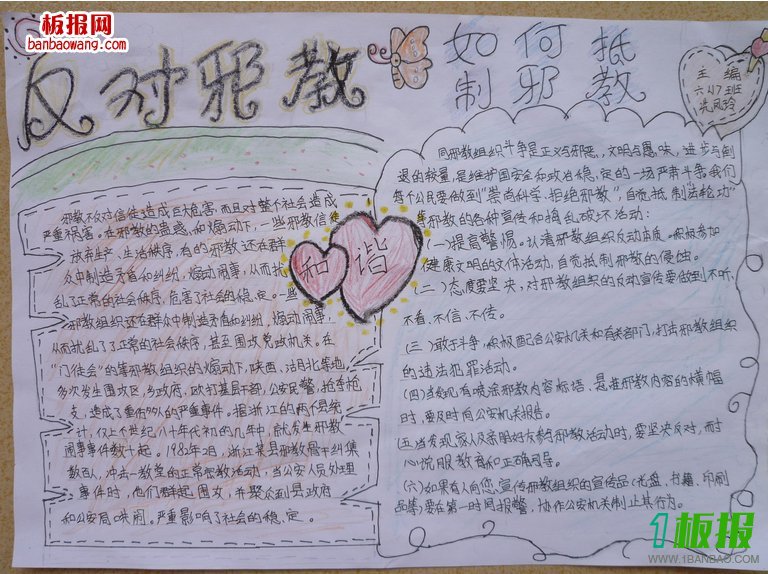 板报网
banbaowang.com
反对邪教
如何抵
制邪教
主编
六(4)班
邪教不仅对信徒造成巨大危害,而且对整个社会造成
严重祸害。在邪教的蛊惑和煽动下,一些邪教信徒
放弃生产、生活秩序,有的邪教还在群
众中制造矛盾和纠纷,煽动闹事,从而扰
乱了正常的社会秩序,危害了社会的稳定。一些
邪教组织还在群众中制造矛盾和纠纷,煽动闹事,
从而扰乱了了正常的社会秩序,甚至围攻党政机关。在
"门徒会"的等邪教组织的煽动下,陕西、湖北等地
多次发生围攻区、乡政府,殴打基层干部、公安民警,抢夺枪
支,造成了重伤
人的严重事件。据浙江的两个县统
计,仅上个世纪八十年代初的几年中,就发生邪教
闹事事件数十起。1982年2月,浙江某县邪教骨干纠集
数百人,冲击一教堂的正常宗教活动,当公安人员处理
事件时,他们群起围攻,并聚众到县政府
和公安局哄闹。严重影响了社会的稳定。
和谐
同邪教组织斗争是正义与邪恶,文明与愚昧,进步与倒
退的较量,是维护国家安全和政治稳定的一场严肃斗争。我们
每个公民要做到"崇尚科学,拒绝邪教",自觉抵制"法轮功"
等邪教的各种宣传和捣乱破坏活动:
(一)提高警惕。认清邪教组织反动本质。积极参加
健康文明的文体活动,自觉抵制邪教的侵蚀。
(二)态度要坚决,对邪教组织的反动宣传要做到不听、
不看、不信、不传。
(三)敢于斗争,积极配合公安机关和有关部门,打击邪教组织
的违法犯罪活动。
(四)当发现有喷涂邪教内容标语、悬挂邪教内容的横幅
时,要及时向公安机关报告。
(五)当发现家人及亲朋好友参与邪教活动时,要坚决反对,耐
心说服教育和正确引导。
(六)如果有人向您宣传邪教组织的宣传品(光盘、书籍、印刷
品等)要在第一时间报警,协作公安机关制止其行为。
1板报
WWW.1BANBAO.COM